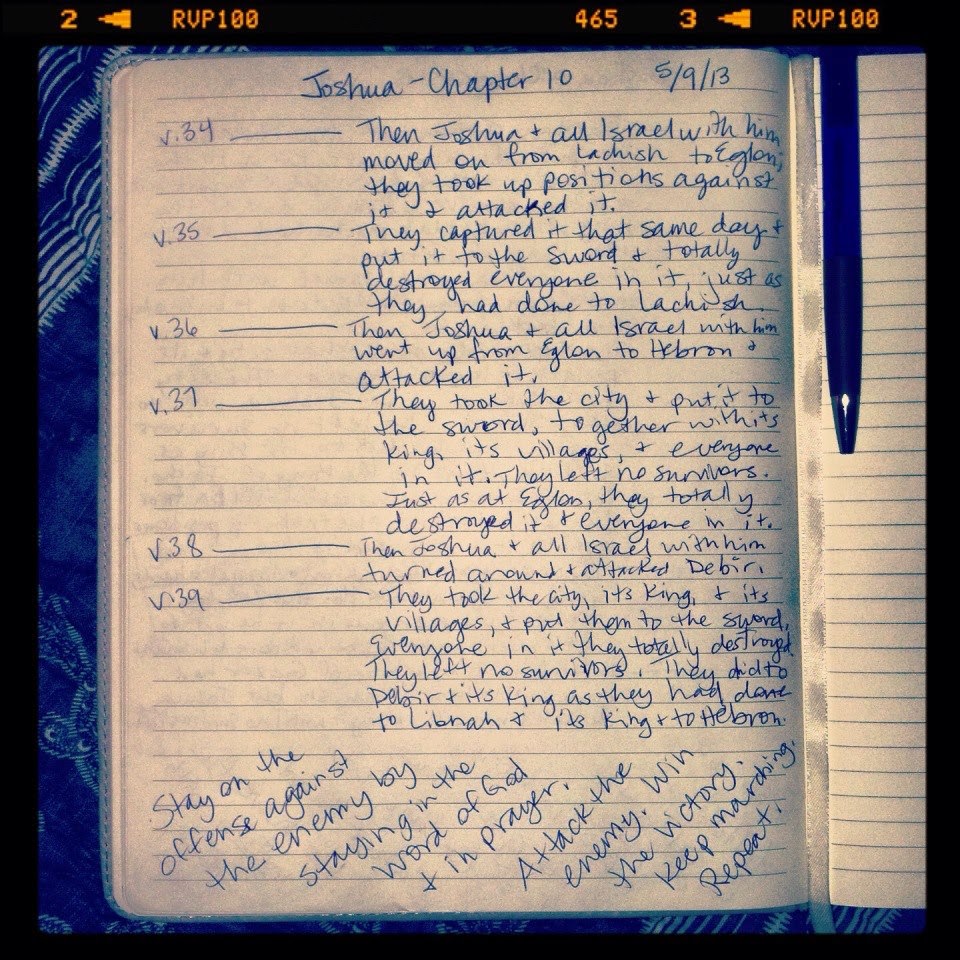 2 RVP100 465 3 RVP100
Joshua - Chapter 10 5/9/13
v.34 Then Joshua + all Israel with him
moved on from Lachish to Eglon;
they took up positions against
it + attacked it.
v.35 They captured it that same day +
put it to the sword + totally
destroyed everyone in it, just as
they had done to Lachish.
v.36 Then Joshua + all Israel with him
went up from Eglon to Hebron +
attacked it.
v.37 They took the city + put it to
the sword, together with its
king, its villages, + everyone
in it. They left no survivors.
Just as at Eglon, they totally
destroyed it + everyone in it.
v.38 Then Joshua + all Israel with him
turned around + attacked Debir.
v.39 They took the city, its King, + its
villages, + put them to the sword.
Everyone in it they totally destroyed.
They left no survivors. They did to
Debir + its King as they had done
to Libnah + its King + to Hebron.
Stay on the
offense against
the enemy by
staying in the
word of God
+ in prayer.
Attack the
enemy. Win
the victory.
Keep marching.
Repeat.